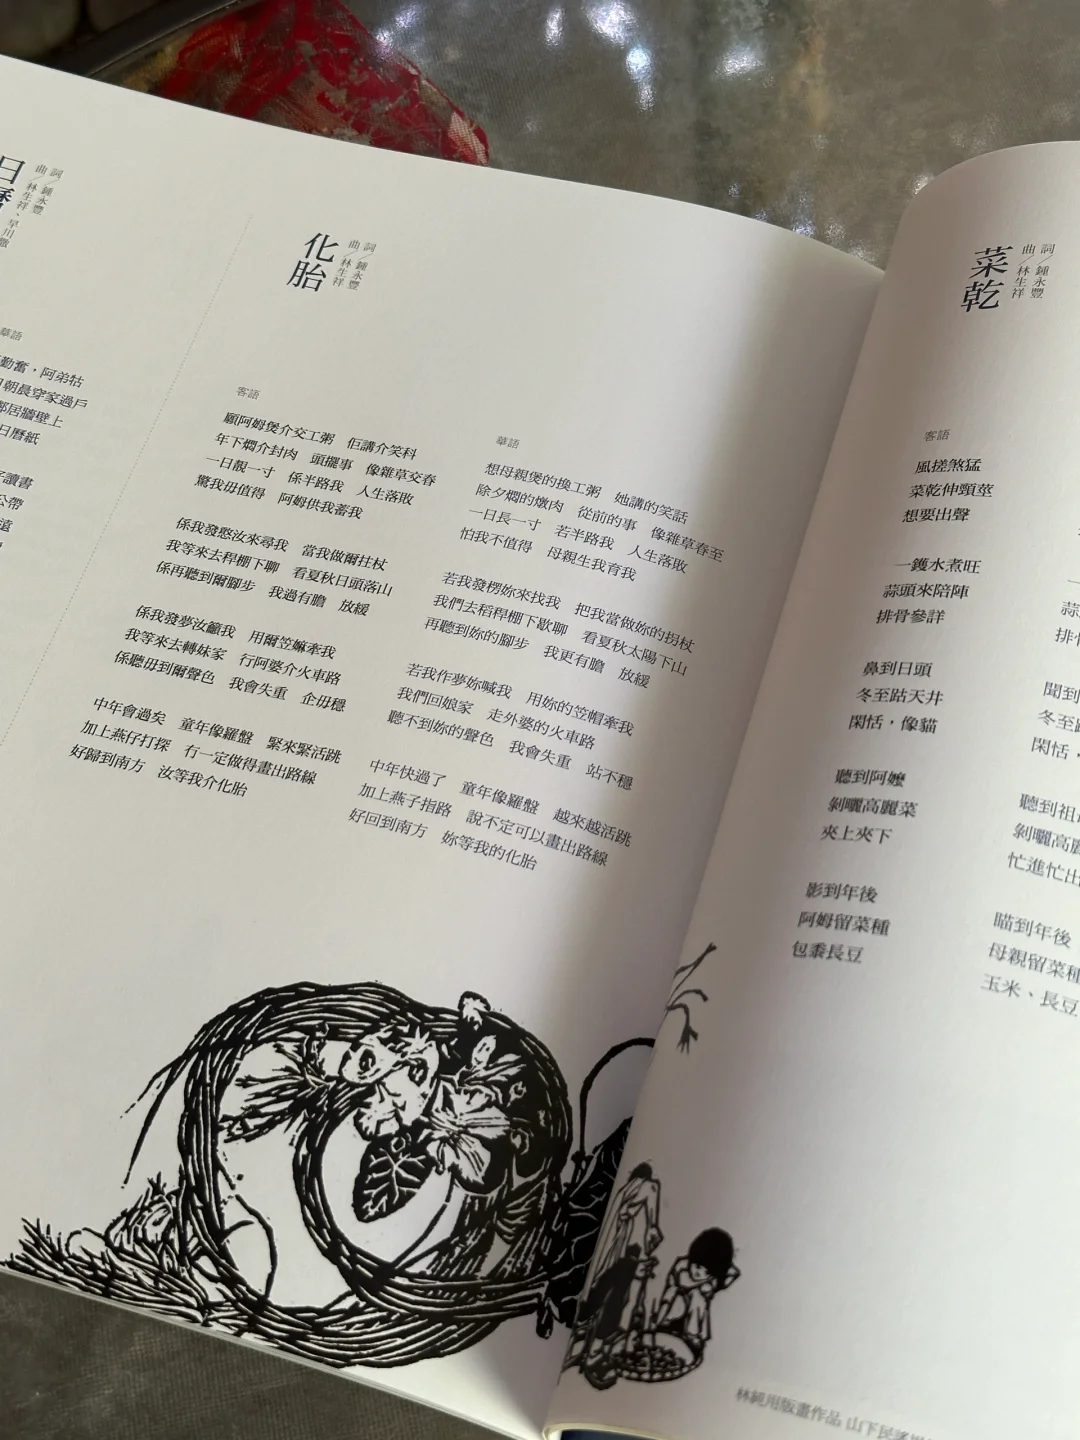 日曆
詞／鍾永豐
曲／林生祥、早川徹
華語
勤奮，阿弟牯
朝晨穿家過戶
鄰居牆壁上
日曆紙
子讀書
公帶
遠
化胎
詞／鍾永豐
曲／林生祥
客語
願阿姆煲介交工粥　佢講介笑科
年下燜介封肉　頭擺事　像雜草交春
一日靚一寸　係半路我　人生落敗
驚我毋值得　阿姆供我蓄我
係我發憨汝來尋我　當我做爾拄杖
我等來去稈棚下聊　看夏秋日頭落山
係再聽到爾腳步　我過有膽　放緩
係我發夢汝籲我　用爾笠嫲牽我
我等來去轉妹家　行阿婆介火車路
係聽毋到爾聲色　我會失重　企毋穩
中年會過矣　童年像羅盤　緊來緊活跳
加上燕仔打探　冇一定做得畫出路線
好歸到南方　汝等我介化胎
華語
想母親煲的換工粥　她講的笑話
除夕燜的燉肉　從前的事　像雜草春至
一日長一寸　若半路我　人生落敗
怕我不值得　母親生我育我
若我發楞妳來找我　把我當做妳的拐杖
我們去稻稈棚下歇聊　看夏秋太陽下山
再聽到妳的腳步　我更有膽　放緩
若我作夢妳喊我　用妳的笠帽牽我
我們回娘家　走外婆的火車路
聽不到妳的聲色　我會失重　站不穩
中年快過了　童年像羅盤　越來越活跳
加上燕子指路　說不定可以畫出路線
好回到南方　妳等我的化胎
菜乾
詞／鍾永豐
曲／林生祥
客語
風搓煞猛
菜乾伸頸莖
想要出聲
一鑊水煮旺
蒜頭來陪陣
排骨參詳
鼻到日頭
冬至跍天井
閑恬，像貓
聽到阿嬤
剝曬高麗菜
夾上夾下
影到年後
阿姆留菜種
包黍長豆
一
蒜
排骨
聞到
冬至
閑恬，
聽到祖
剝曬高麗
忙進忙出
瞄到年後
母親留菜種
玉米、長豆
林純用版畫作品 山下民謠